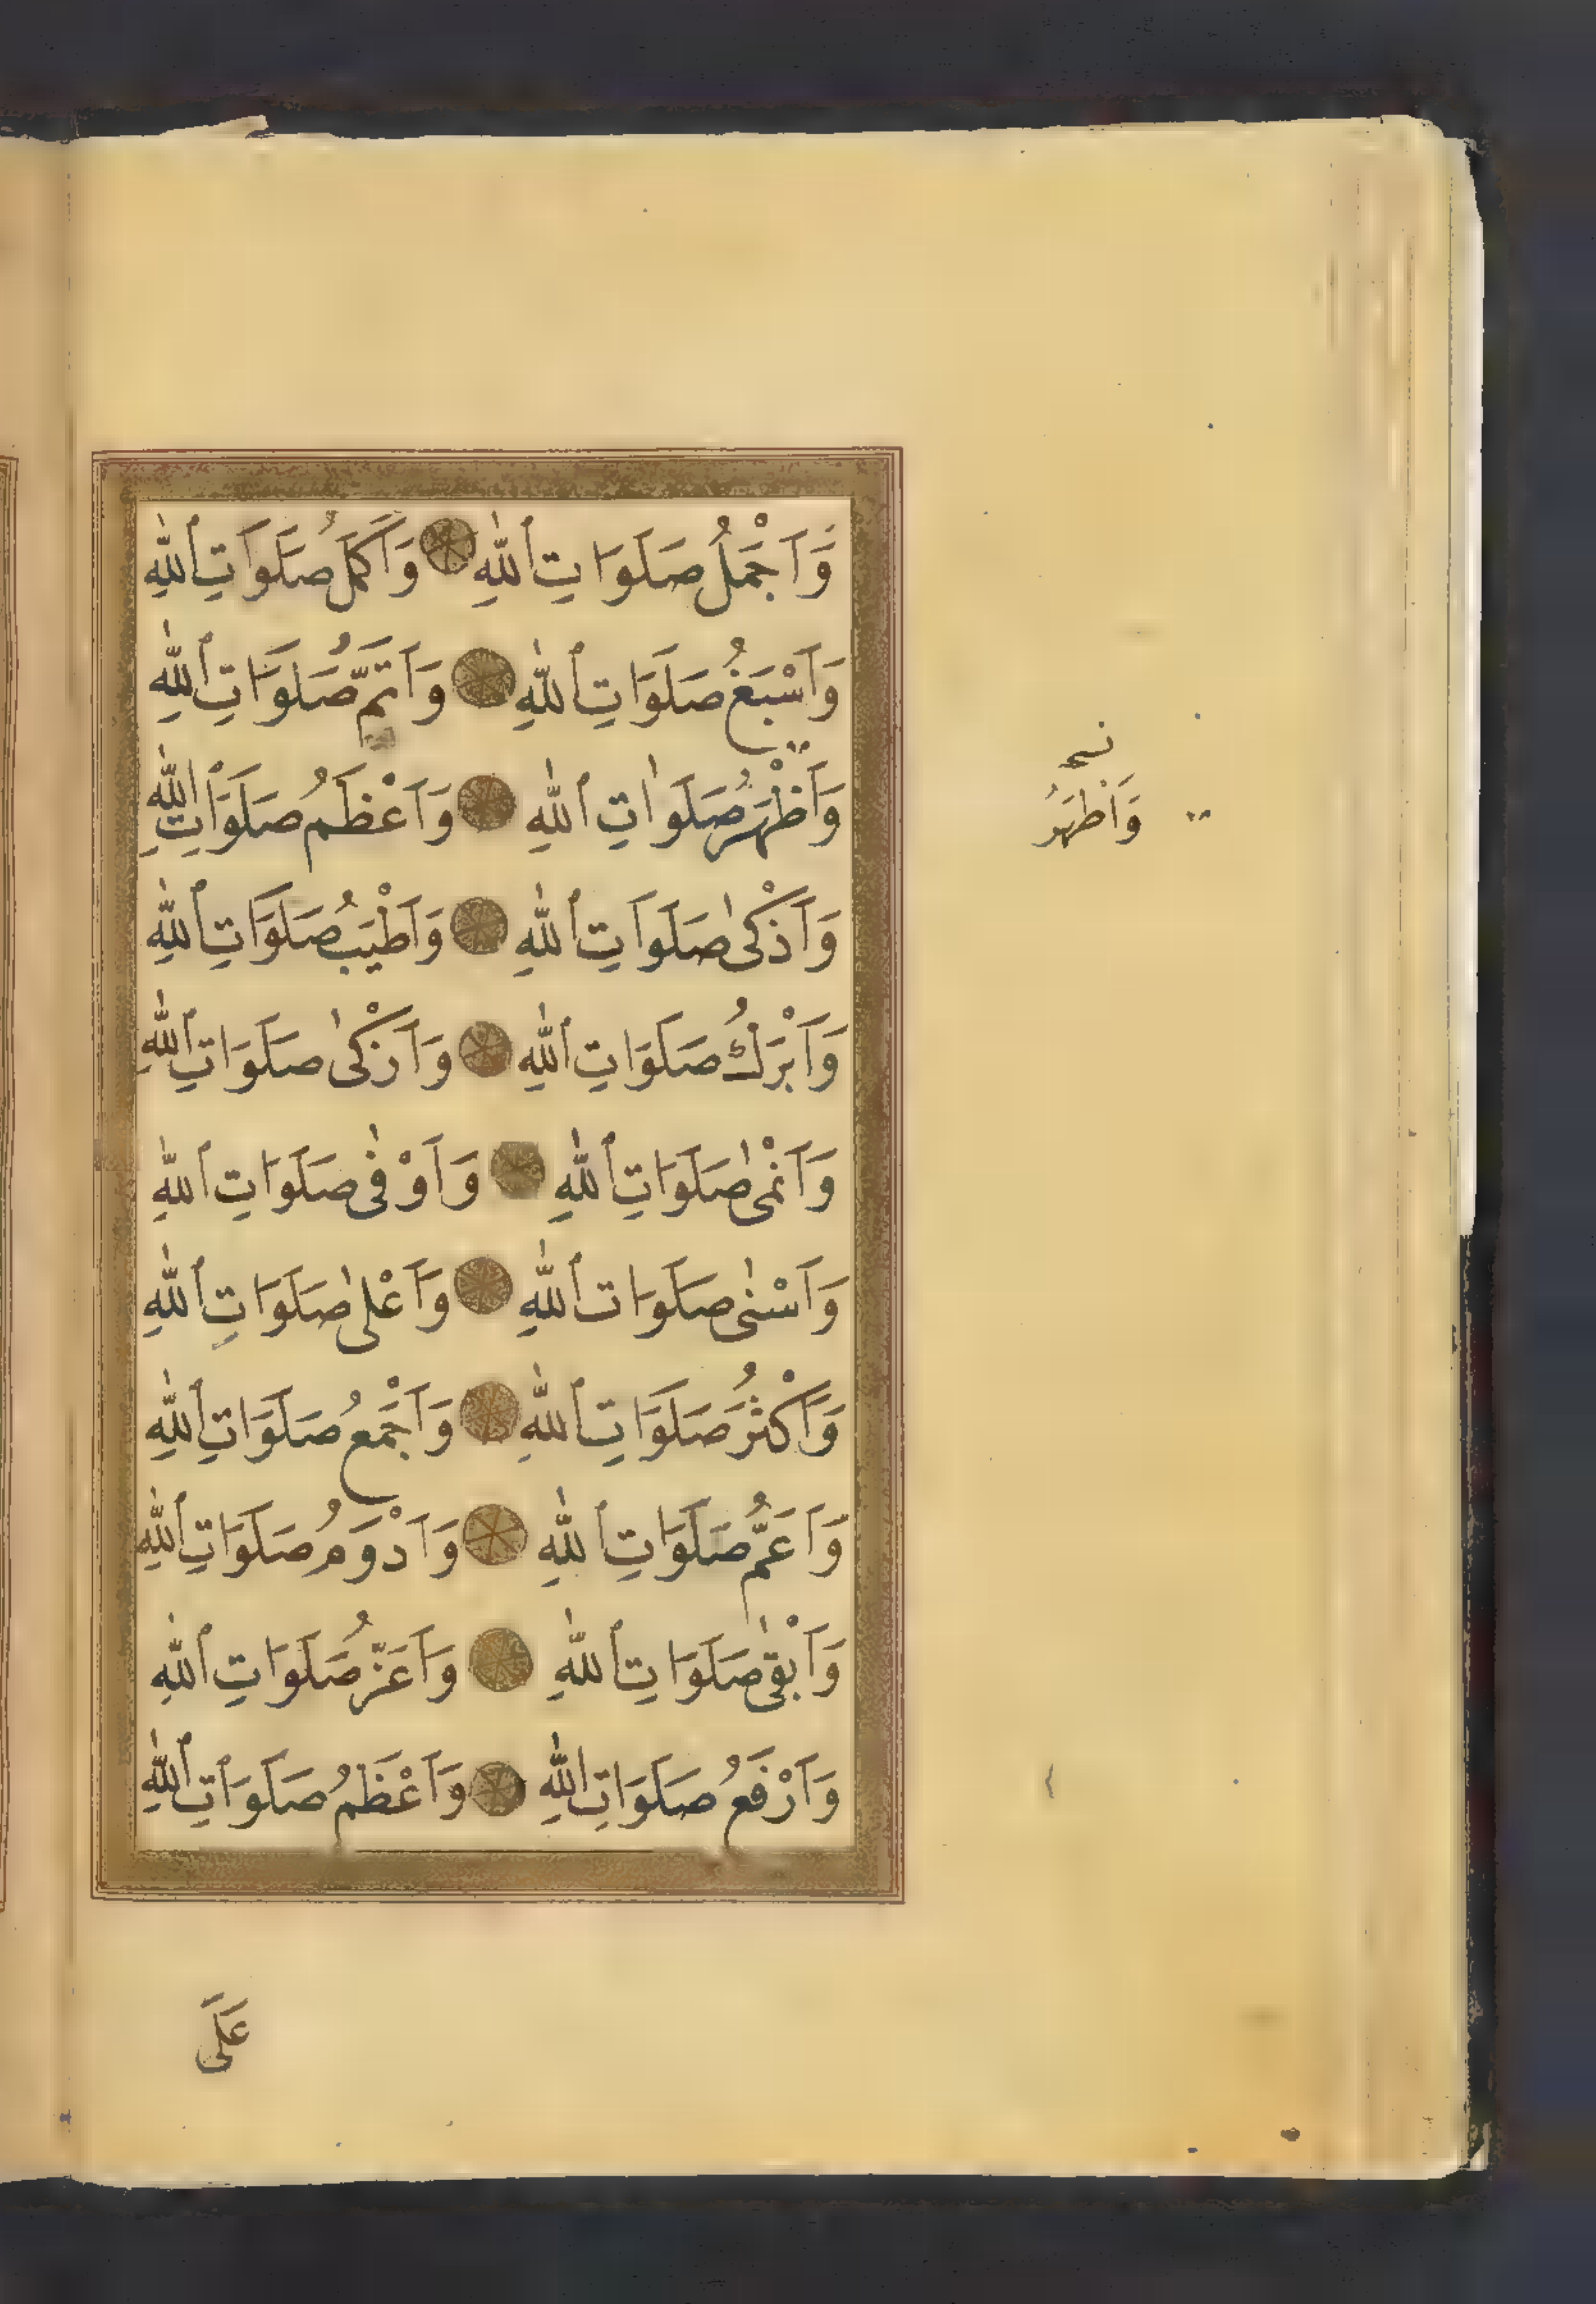 وَاَجْمَلُ صَلَوَاتِ اللّٰهِ وَاَكْمَلُ صَلَوَاتِ اللّٰهِ
وَاَسْبَغُ صَلَوَاتِ اللّٰهِ وَاَتَمُّ صَلَوَاتِ اللّٰهِ
وَاَظْهَرُ صَلَوَاتِ اللّٰهِ وَاَعْظَمُ صَلَوَاتِ اللّٰهِ
وَاَذْكٰى صَلَوَاتِ اللّٰهِ وَاَطْيَبُ صَلَوَاتِ اللّٰهِ
وَاَبْرَكُ صَلَوَاتِ اللّٰهِ وَاَزْكٰى صَلَوَاتِ اللّٰهِ
وَاَنْمٰى صَلَوَاتِ اللّٰهِ وَاَوْفٰى صَلَوَاتِ اللّٰهِ
وَاَسْنٰى صَلَوَاتِ اللّٰهِ وَاَعْلٰى صَلَوَاتِ اللّٰهِ
وَاَكْثَرُ صَلَوَاتِ اللّٰهِ وَاَجْمَعُ صَلَوَاتِ اللّٰهِ
وَاَعَمُّ صَلَوَاتِ اللّٰهِ وَاَدْوَمُ صَلَوَاتِ اللّٰهِ
وَاَبْقٰى صَلَوَاتِ اللّٰهِ وَاَعَزُّ صَلَوَاتِ اللّٰهِ
وَاَرْفَعُ صَلَوَاتِ اللّٰهِ وَاَعْظَمُ صَلَوَاتِ اللّٰهِ
عَلَى
وَاَطْهَرُ